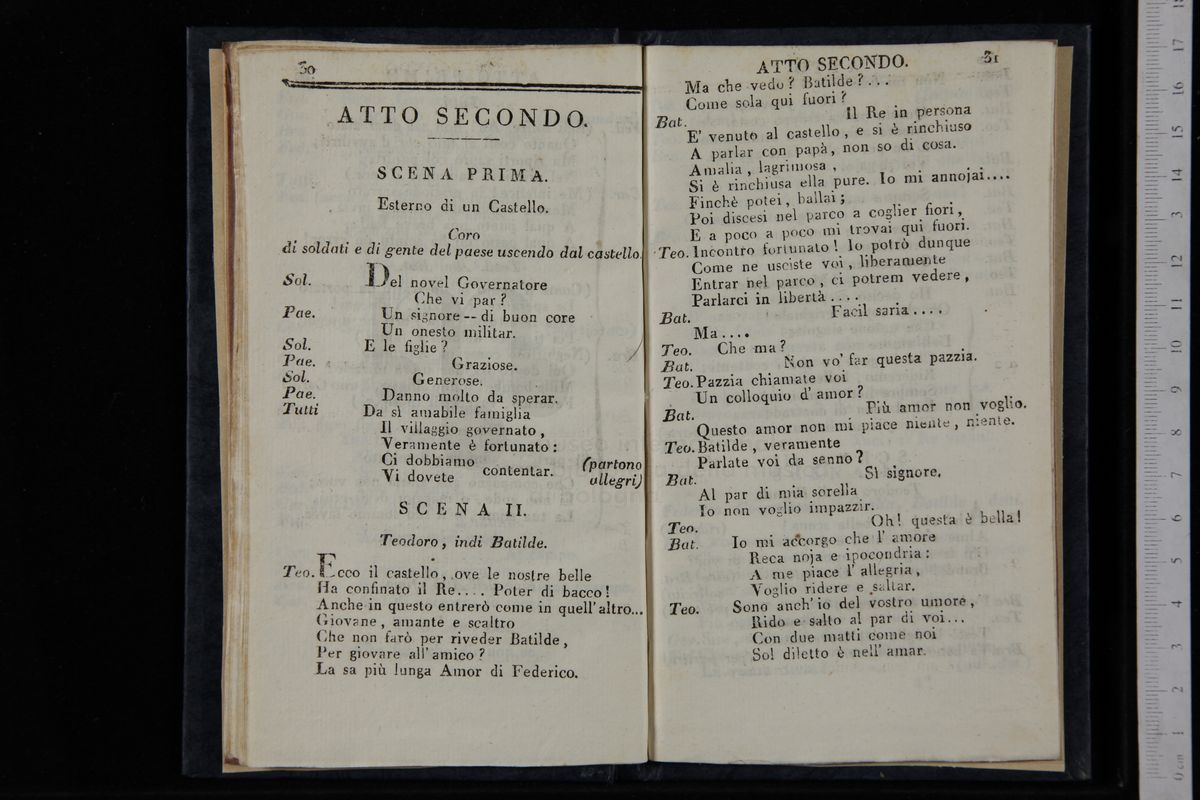 30
ATTO SECONDO.
SCENA PRIMA.
Esterno di un Castello.
Coro
di soldati e di gente del paese uscendo dal castello.
Sol. Del novel Governatore
Che vi par?
Pae. Un signore -- di buon core
Un onesto militar.
Sol. E le figlie?
Pae. Graziose.
Sol. Generose.
Pae. Danno molto da sperar.
Tutti Da sì amabile famiglia
Il villaggio governato,
Veramente è fortunato:
Ci dobbiamo
Vi dovete contentar. (partono allegri)
SCENA II.
Teodoro, indi Batilde.
Teo. Ecco il castello, ove le nostre belle
Ha confinato il Re.... Poter di bacco!
Anche in questo entrerò come in quell'altro...
Giovane, amante e scaltro
Che non farò per riveder Batilde,
Per giovare all'amico?
La sa più lunga Amor di Federico.
ATTO SECONDO. 31
Ma che vedo? Batilde?...
Come sola qui fuori?
Bat. Il Re in persona
E' venuto al castello, e si è rinchiuso
A parlar con papà, non so di cosa.
Amalia, lagrimosa,
Si è rinchiusa ella pure. Io mi annojai....
Finchè potei, ballai;
Poi discesi nel parco a coglier fiori,
E a poco a poco mi trovai qui fuori.
Teo. Incontro fortunato! Io potrò dunque
Come ne usciste voi, liberamente
Entrar nel parco, ci potrem vedere,
Parlarci in libertà....
Bat. Facil saria....
Ma....
Teo. Che ma?
Bat. Non vo' far questa pazzia.
Teo. Pazzia chiamate voi
Un colloquio d' amor?
Bat. Più amor non voglio.
Questo amor non mi piace niente, niente.
Teo. Batilde, veramente
Parlate voi da senno?
Bat. Sì signore.
Al par di mia sorella
Io non voglio impazzir.
Teo. Oh! questa è bella!
Bat. Io mi accorgo che l' amore
Reca noja e ipocondria:
A me piace l' allegria,
Voglio ridere e saltar.
Teo. Sono anch'io del vostro umore,
Rido e salto al par di voi...
Con due matti come noi
Sol diletto è nell' amar.